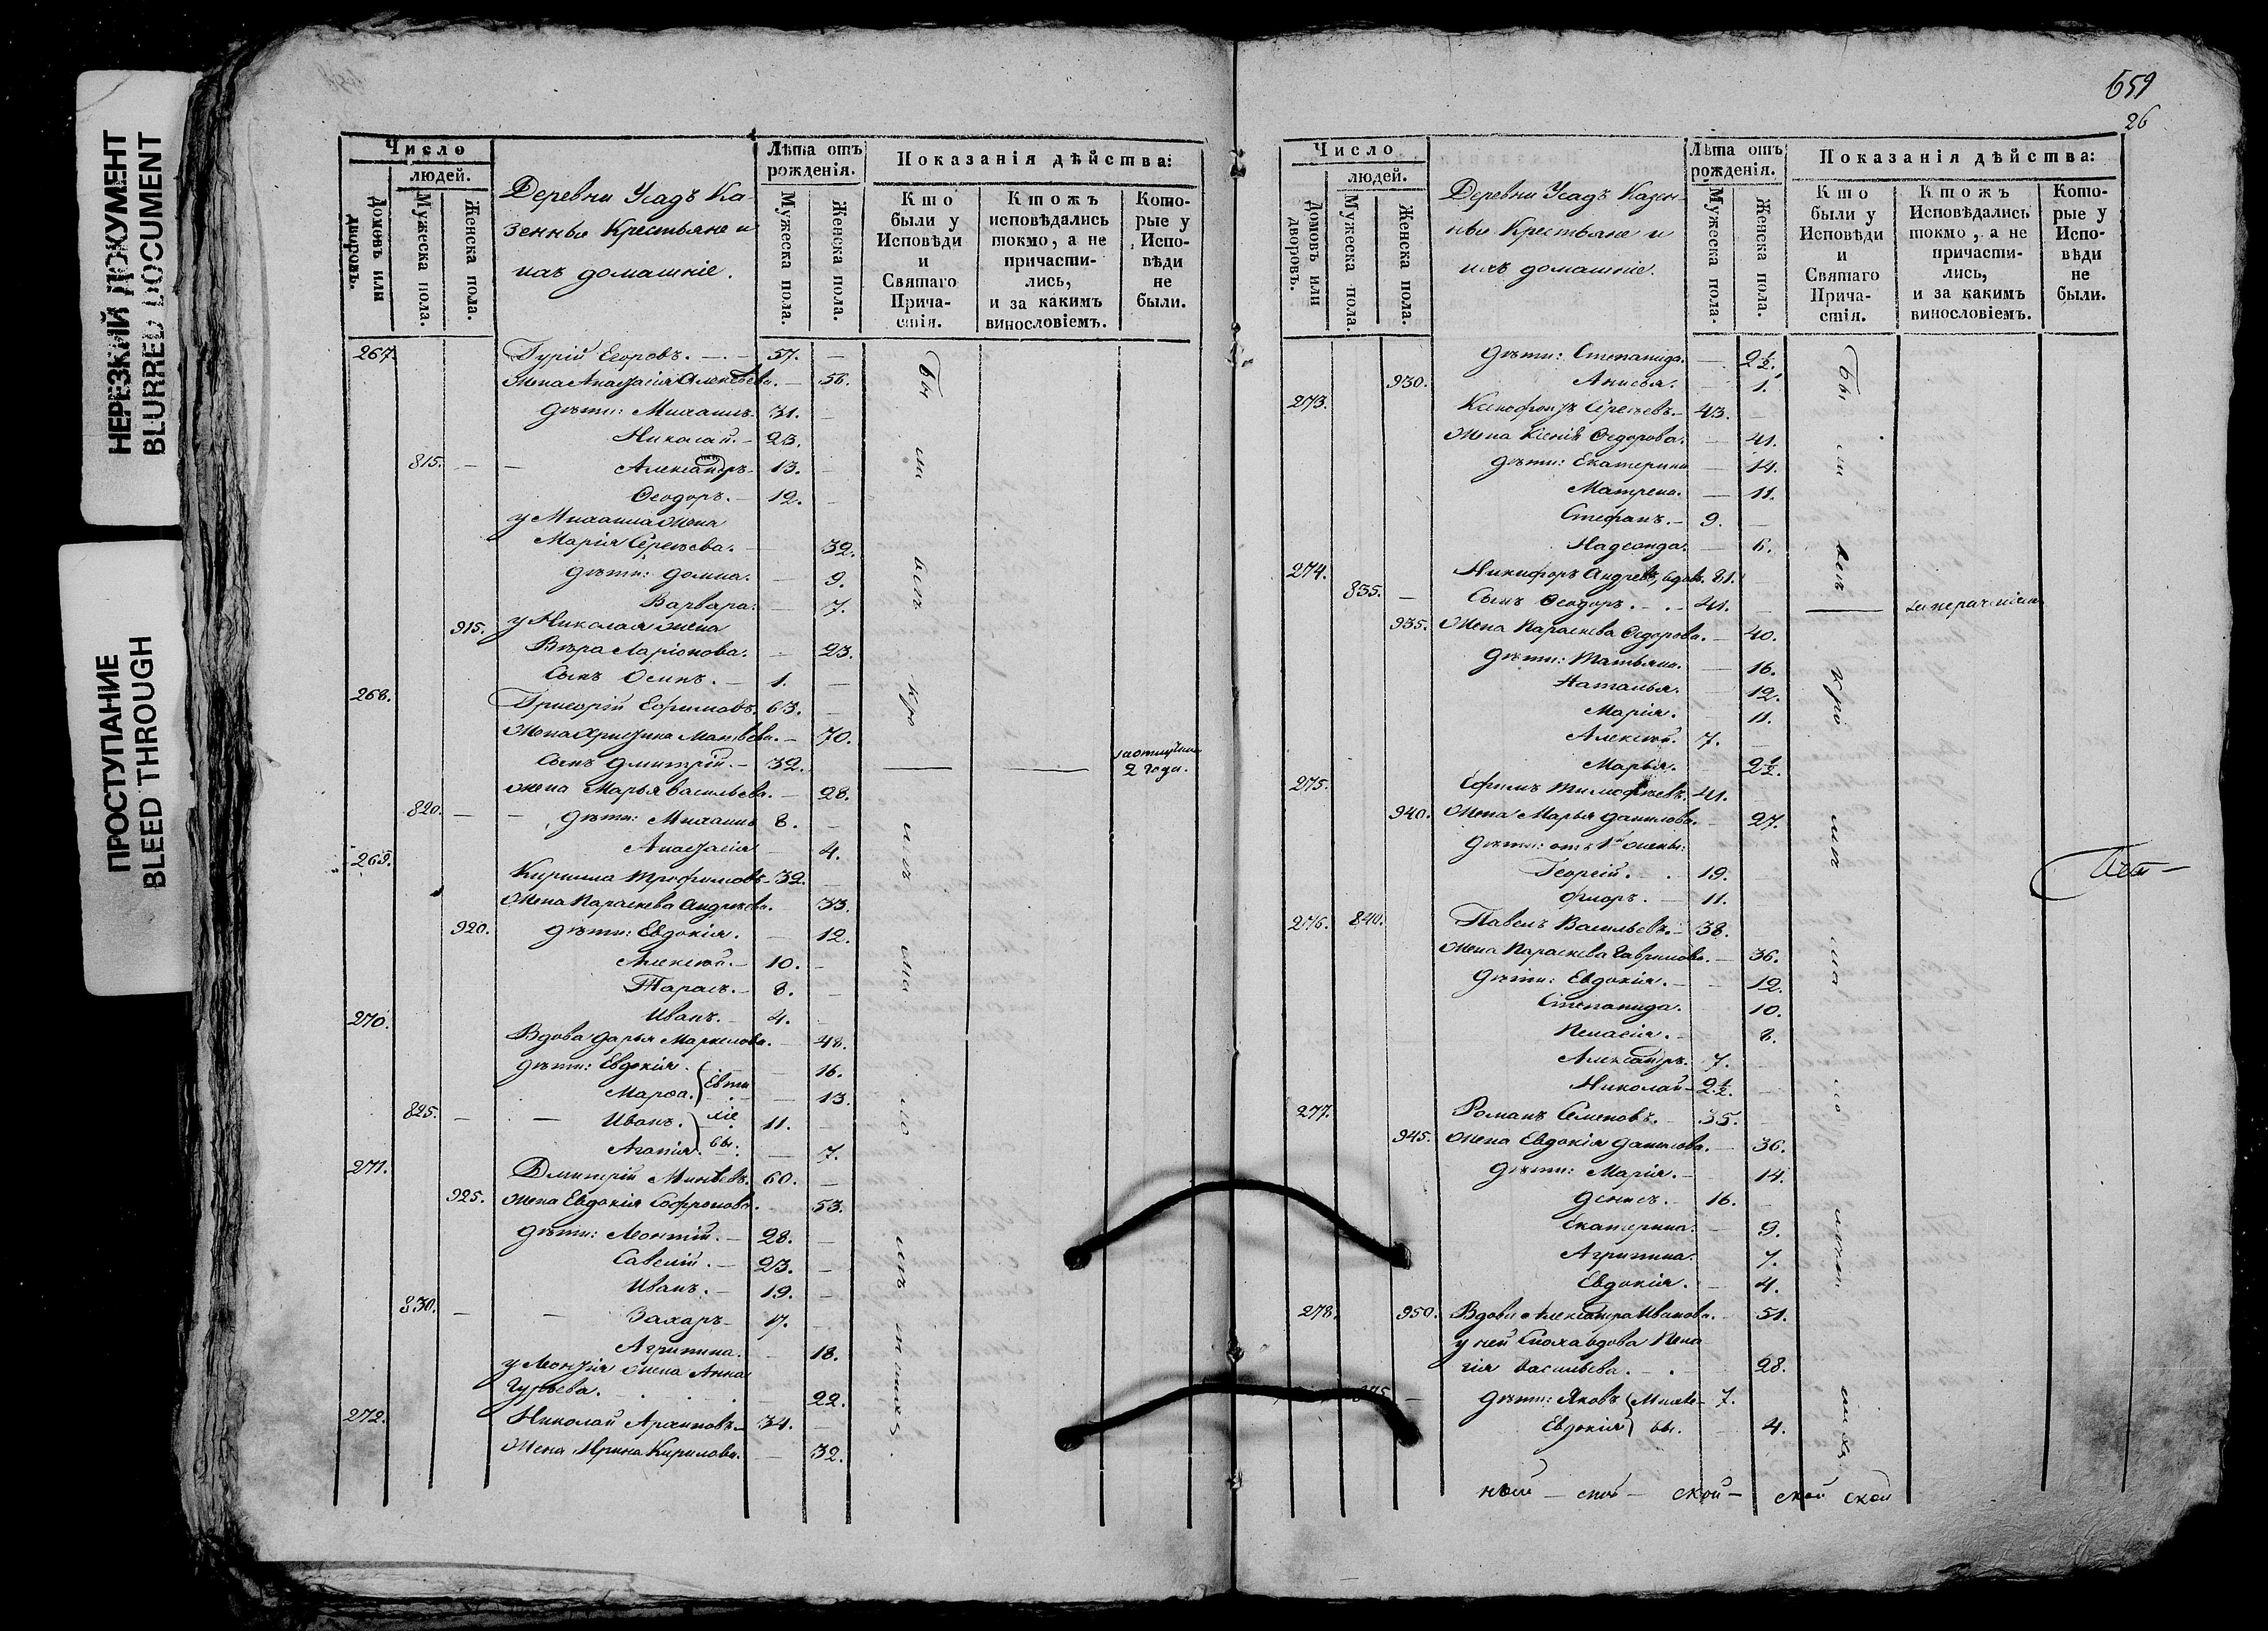 НЕРЕЗКИЙ ДОКУМЕНТ
BLURRED DOCUMENT
ПРОСТУПАНИЕ
BLEED THROUGH
Число
людей.
Домовъ или дворовъ.
Мужеска пола.
Женска пола.
Деревни Усадъ Ка-
зенные Крестьяне и
ихъ домашніе.
Лѣта отъ рожденія.
Мужеска пола.
Женска пола.
Показанія дѣйства:
Кто были у Исповѣди и Святаго Прича-стія.
Ктожъ исповѣдались токмо, а не причасти-лись, и за какимъ винословіемъ.
Кото-рые у Испо-вѣди не были.
267. Гурій Егоровъ. — 57. —
Жена Анастасія Алексѣева. — 56.
дѣти: Михаилъ. 31. —
Николай. — 23.
815. — — Александръ — 13. —
Ѳеодоръ. — 12. —
у Михаила жена
Марія Сергѣева. — 32.
дѣти: Домна. — 9.
Варвара. — 7.
915. у Николая жена
Вѣра Ларіонова. — 23.
Сынъ Осипъ. — 1. —
268. Григорій Ефимовъ. 63. —
Жена Христина Матвѣева. — 70.
Сынъ Дмитрій. — 32. — — 2 года.
Жена Марья Васильева. — 28.
820. — — дѣти: Михаилъ 8. —
Анастасія — 4.
269. Кирилла Трофимовъ — 32. —
Жена Параскева Андреева. 33.
920. дѣти: Евдокія. — 12.
Алексѣй. — 10. —
Тарасъ. — 8. —
Иванъ. — 4. —
270. Вдова Дарья Маркелова. — 48.
дѣти: Евдокія. — 16.
Марѳа. — 13.
825. — — Иванъ. 11. —
Агапія. — 7.
271. Дмитрій Минѣевъ. 60. —
925. Жена Евдокія Софронова. 53.
дѣти: Леонтій. — 28. —
Савелій. — 23. —
Иванъ. — 19. —
830. — — Захаръ — 17. —
Агрипина. — 18.
у Леонтія жена Анна
Гурьева. 22.
272. Николай Архиповъ — 34. —
Жена Ирина Кирилова. — 32.
659
26
Число
людей.
Домовъ или дворовъ.
Мужеска пола.
Женска пола.
Деревни Усадъ Казен-
ные Крестьяне и
ихъ домашніе.
Лѣта отъ рожденія.
Мужеска пола.
Женска пола.
Показанія дѣйства:
Кто были у Исповѣди и Святаго Прича-стія.
Ктожъ Исповѣдались токмо, а не причасти-лись, и за какимъ винословіемъ.
Кото-рые у Испо-вѣди не были.
дѣти: Степанида. — 2½.
930. Анисья. — 1.
273. Ксенофонтъ Сергѣевъ. — 43. —
Жена Ксенія Ѳедорова. — 41.
дѣти: Екатерина — 14.
Матрена. — 11.
Стефанъ. — 9. —
Надежда. — 6.
274. Никифоръ Андреевъ, вдовъ. 81. —
835. — Сынъ Ѳеодоръ. — 41. —
935. Жена Параскева Ѳедорова. — 40.
дѣти: Татьяна. — 16.
Наталья. 12.
Марія. 11.
Алексѣй. 7. —
Марья. 2½.
275. Ефимъ Тимофѣевъ. 41. —
940. Жена Марья Данилова. — 27.
дѣти: отъ 1й жены:
Георгій. 19. —
Флоръ. — 11. —
276. 840. Павелъ Васильевъ. — 38.
Жена Параскева Гаврилова. — 36.
дѣти: Евдокія. — 12.
Степанида. 10.
Пелагія. — 8.
Александръ. 7. —
Николай — 2½. —
277. Романъ Семеновъ. — 35. —
945. Жена Евдокія Данилова. — 36.
дѣти: Марія. — 14.
Денисъ. — 16. —
Екатерина. — 9.
Агрипина. — 7.
Евдокія. — 4.
278. 950. Вдова Александра Иванова. — 51.
у ней Сноха вдова Пела-
гія Васильева. — 28.
— дѣти: Яковъ 7.
Евдокія 4.
ской — ской ской